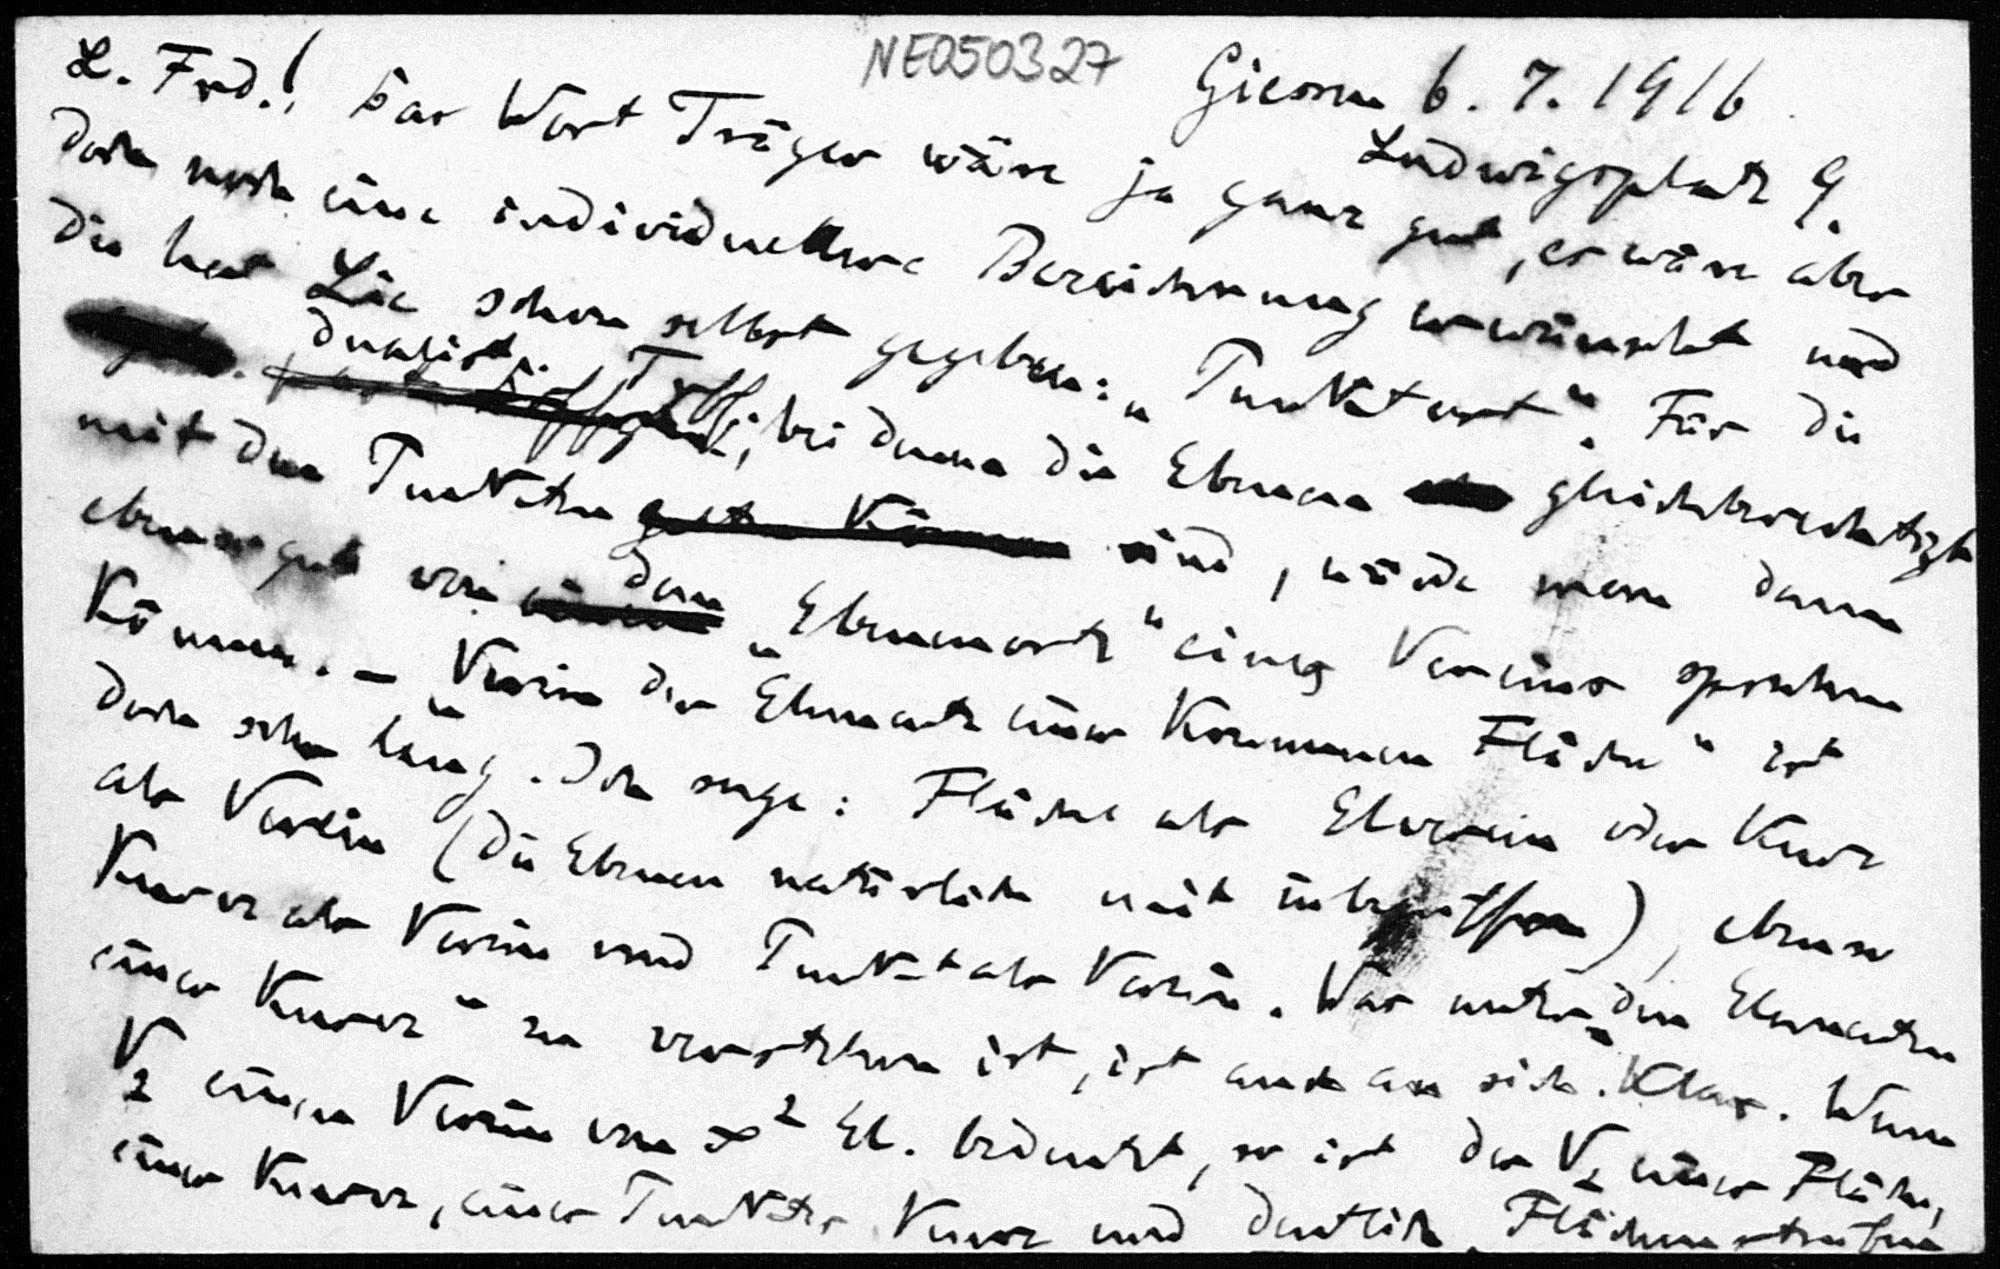 NE050327
Giessen 6. 7. 1916
Ludwigsplatz 9.
L. Frd.! Das Wort Träger wäre ja ganz gut, es wäre aber
doch noch eine individuellere Bezeichnung erwünscht und
die hat Lie schon selbst gegeben: „Punktort“. Für die
dualist. Tr
bei denen die Ebenen gleichberechtigt
mit den Punkten gelten können sind, würde man dann
ebenso gut von dem „Ebenenort“ eines Vereins sprechen
können. – „Verein der Elemente einer krummen Fläche“ ist
doch sehr läng. Ich sage: Fläche als Elverein oder kurz
als Verein (die Ebenen natürlich mit inbegriffen), ebenso
Kurve als Verein und Punkt als Verein. Was unter „den Elementen
einer Kurve“ zu verstehen ist, ist auch an sich klar. Wenn
V₂ einen Verein von ∞² El. bedeutet, so ist der V₂ einer Fläche,
einer Kurve, eines Punktes kurz und deutlich. Flächenstreifen